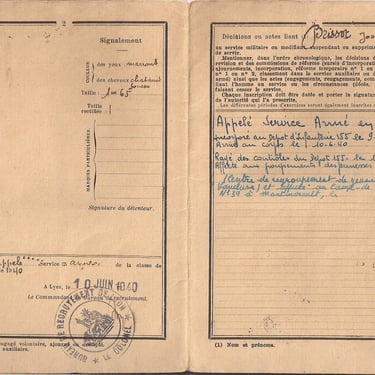 2
Signalement
COULEUR
des yeux marrons
des cheveux chatains
foncés
Taille : 1m 65
Taille
rectifiée
MARQUES PARTICULIÈRES
Signature du détenteur.
Appelé Service armé de la classe de
1940
A Lyon, le 10 JUIN 1940
Le Commandant du Bureau de recrutement.
BUREAU DE RECRUTEMENT DE LYON
LT COLONEL
engagé volontaire, ajourné ou
auxiliaire.
Décisions ou actes liant Poissot
au service militaire ou modifiant, suspendant ou supprimant
de servir.
Mentionner, dans l'ordre chronologique, les décisions
revision et des commissions de réforme (avis d'incorporation,
ajournements, incorporation, réforme temporaire n° 1 ou
n° 1 ou n° 2, classement dans le service auxiliaire ou
ainsi que les actes (engagements, rengagements, commissions,
dont ils ont été l'objet.
Chaque inscription doit être datée et porter la signature
de l'autorité qui l'a prescrite.
Les différentes périodes d'exercices seront également inscrites
Appelé Service Armé en
Incorporé au Dépot d'Infanterie 155 le
Arrivé au corps le 10.6.40
Rayé des controles du Dépot 155 le
Affecté aux groupements de jeunesse
(Centre de regroupement de
Vaucluse) et affecté au Camp de
N° 39 à le
(1) Nom et prénoms.